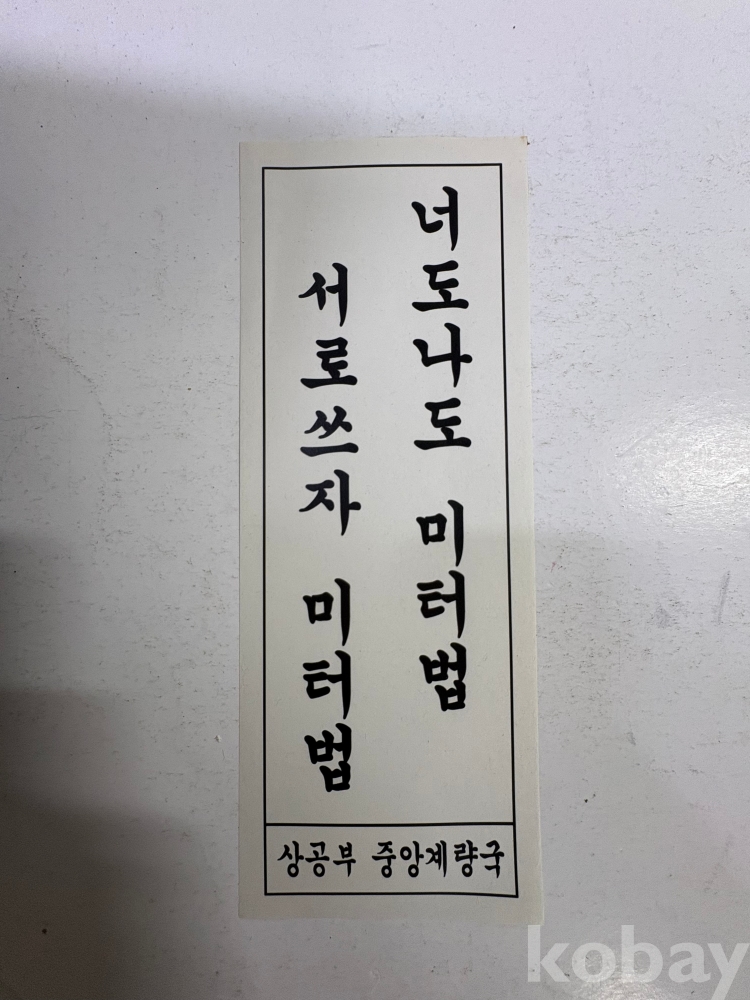 너도나도 미터법
서로쓰자 미터법
상공부 중앙계량국
kobay